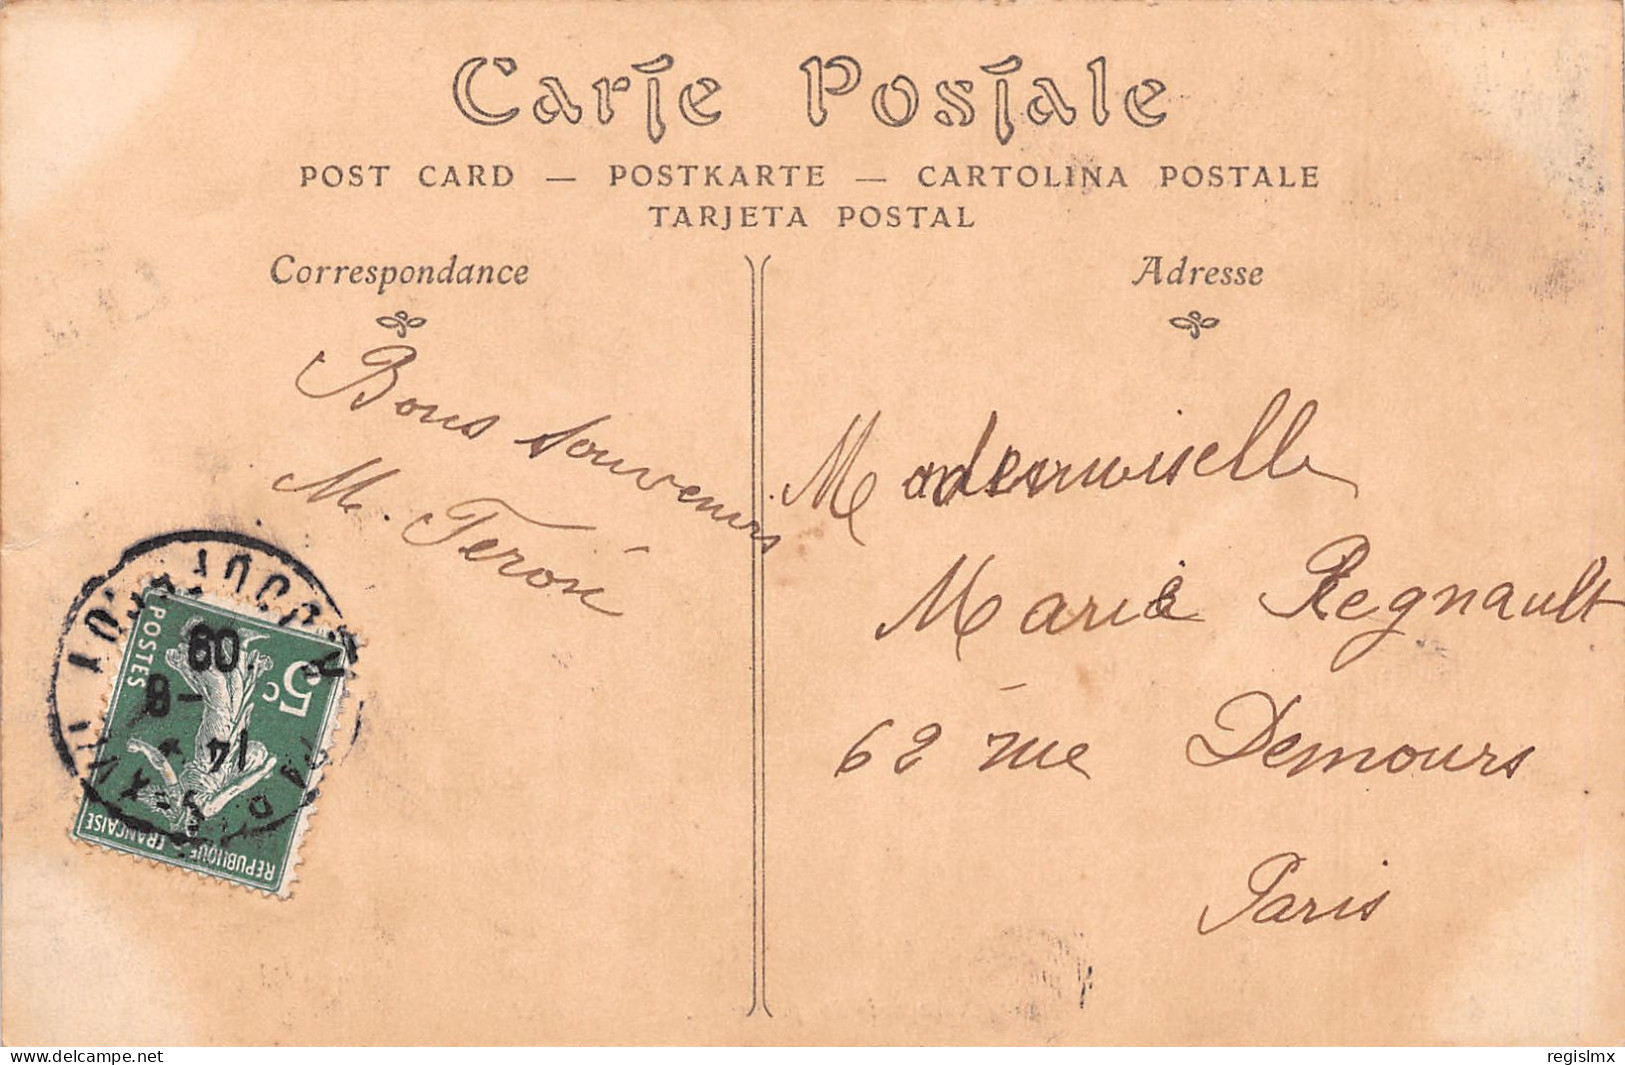 Carte Postale
POST CARD — POSTKARTE — CARTOLINA POSTALE
TARJETA POSTAL
Correspondance
Adresse
Bons souvenirs
M.
Mademoiselle
Marie Regnault
62 rue Demours
Paris
POSTES
5c
REPUBLIQUE FRANÇAISE
14
-8
09
delcampe.net
regislmx